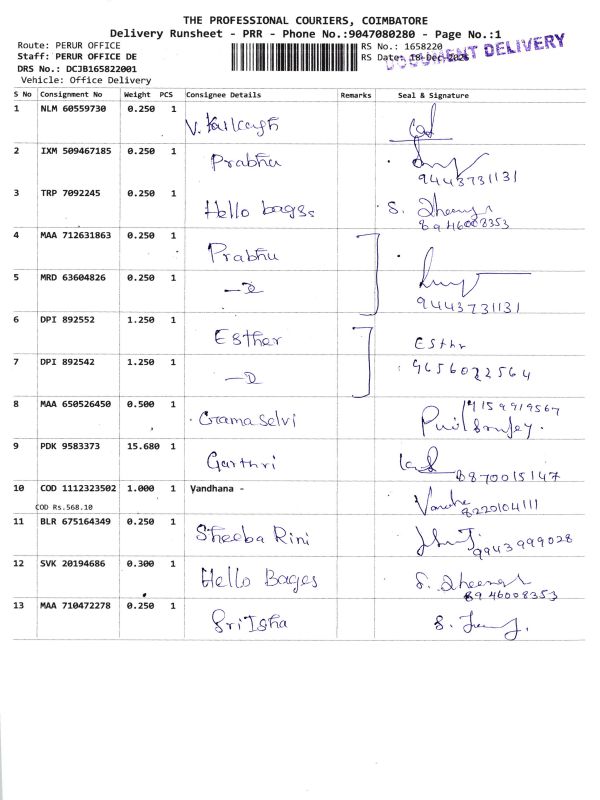 THE PROFESSIONAL COURIERS, COIMBATORE
Delivery Runsheet - PRR - Phone No.:9047080280 - Page No.:1
Route: PERUR OFFICE
RS No.: 1658220
DOCUMENT DELIVERY
Staff: PERUR OFFICE DE
RS Date: 18-Dec-2025
DRS No.: DCJB165822001
Vehicle: Office Delivery
S No Consignment No Weight PCS Consignee Details Remarks Seal & Signature
1 NLM 60559730 0.250 1
2 IXM 509467185 0.250 1 Prabhu
9443731131
3 TRP 7092245 0.250 1 Hello bages
8946008353
4 MAA 712631863 0.250 1 Prabhu
5 MRD 63604826 0.250 1
9443731131
6 DPI 892552 1.250 1 Esther Esthr
7 DPI 892542 1.250 1 9656022564
8 MAA 650526450 0.500 1 Gramaselvi 9159919567
9 PDK 9583373 15.680 1 Garthri
8870015147
10 COD 1112323502 1.000 1 Vandhana -
COD Rs.568.10 8220104111
11 BLR 675164349 0.250 1 Sheeba Rini
9943999028
12 SVK 20194686 0.300 1 Hello Bages
8946008353
13 MAA 710472278 0.250 1 Sri Isha